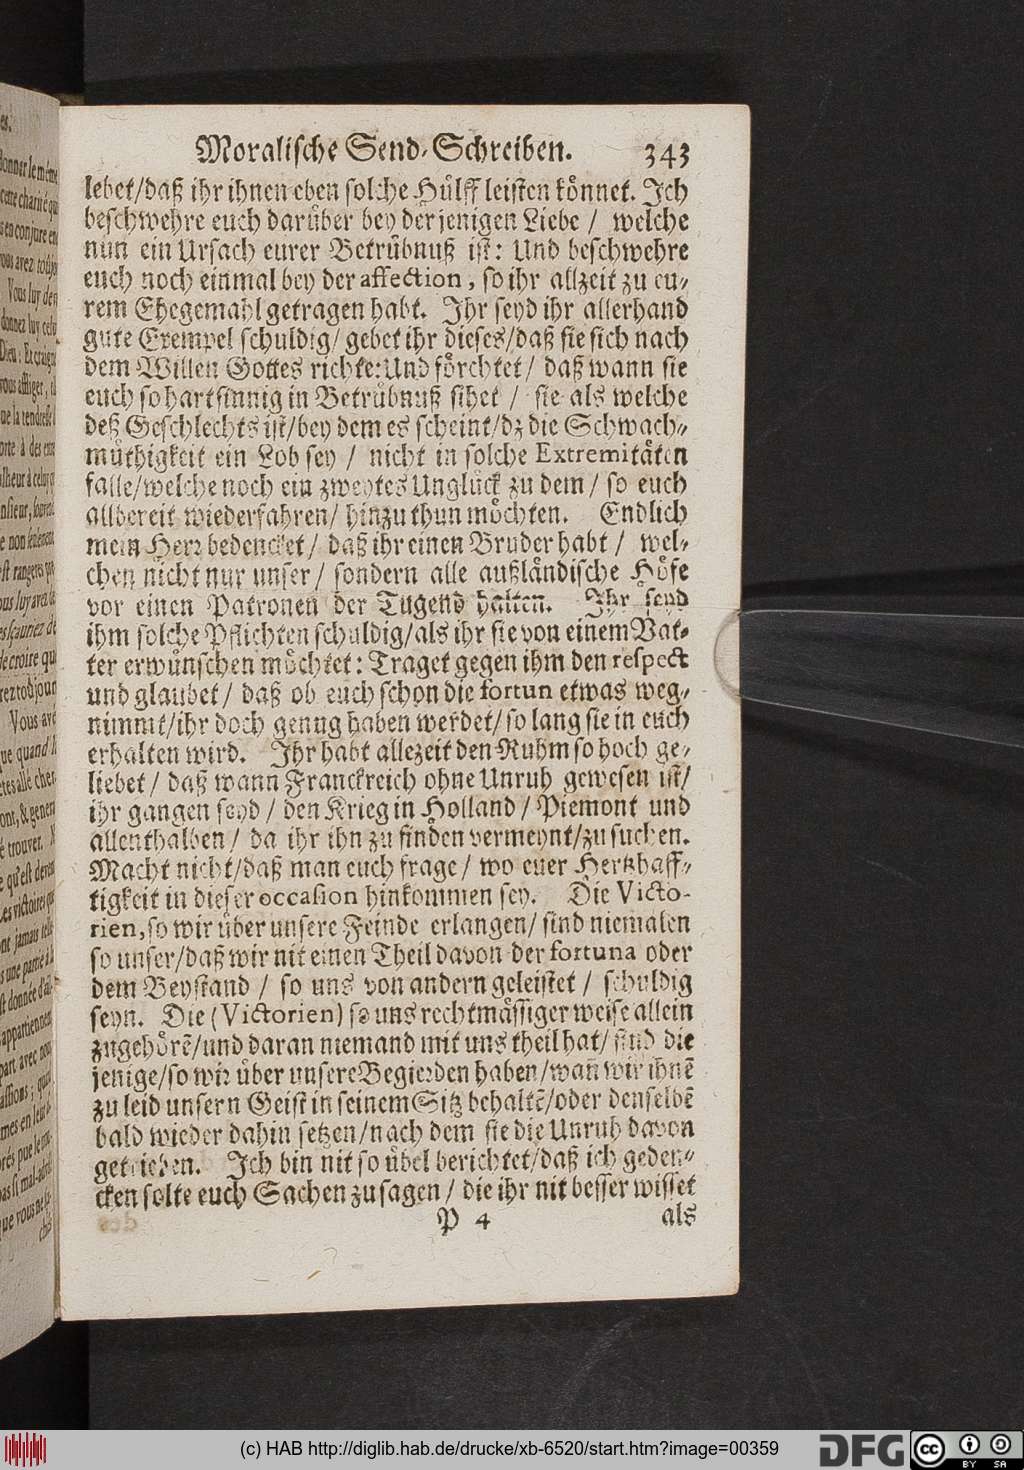 Moralische Send-Schreiben. 343
lebet/daß ihr ihnen eben solche Hülff leisten könnet. Ich
beschwehre euch darüber bey derjenigen Liebe / welche
nun ein Ursach eurer Betrübnuß ist: Und beschwehre
euch noch einmal bey der affection, so ihr allzeit zu eu-
rem Ehegemahl getragen habt. Ihr seyd ihr allerhand
gute Exempel schuldig/ gebet ihr dieses/daß sie sich nach
dem Willen Gottes richte: Und förchtet/ daß wann sie
euch so hartsinnig in Betrübnuß sihet / sie als welche
deß Geschlechts ist/bey dem es scheint/dz die Schwach-
müthigkeit ein Lob sey / nicht in solche Extremitäten
falle/welche noch ein zweytes Unglück zu dem / so euch
allbereit wiederfahren/ hinzu thun möchten. Endlich
mein Herr bedencket/ daß ihr einen Bruder habt / wel-
chen nicht nur unser/ sondern alle außländische Höfe
vor einen Patronen der Tugend halten. Ihr seyd
ihm solche Pflichten schuldig/als ihr sie von einem Vat-
ter erwünschen möchtet: Traget gegen ihm den respect
und glaubet/ daß ob euch schon die fortun etwas weg-
nimmt/ihr doch genug haben werdet/so lang sie in euch
erhalten wird. Ihr habt allezeit den Ruhm so hoch ge-
liebet/ daß wann Franckreich ohne Unruh gewesen ist/
ihr gangen seyd / den Krieg in Holland / Piemont und
allenthalben/ da ihr ihn zu finden vermeynt/zu suchen.
Macht nicht/daß man euch frage/ wo euer Hertzhaff-
tigkeit in dieser occasion hinkommen sey. Die Victo-
rien, so wir über unsere Feinde erlangen/ sind niemalen
so unser/daß wir nit einen Theil davon der fortuna oder
dem Beystand / so uns von andern geleistet/ schuldig
seyn. Die (Victorien) so uns rechtmässiger weise allein
zugehörē/und daran niemand mit uns theil hat/ sind die
jenige/so wir über unsere Begierden haben/wañ wir ihnē
zu leid unsern Geist in seinem Sitz behaltē/oder denselbē
bald wieder dahin setzen/nach dem sie die Unruh davon
getrieben. Ich bin nit so übel berichtet/daß ich geden-
cken solte euch Sachen zu sagen / die ihr nit besser wisset
P 4 als
(c) HAB http://diglib.hab.de/drucke/xb-6520/start.htm?image=00359
DFG
cc BY SA